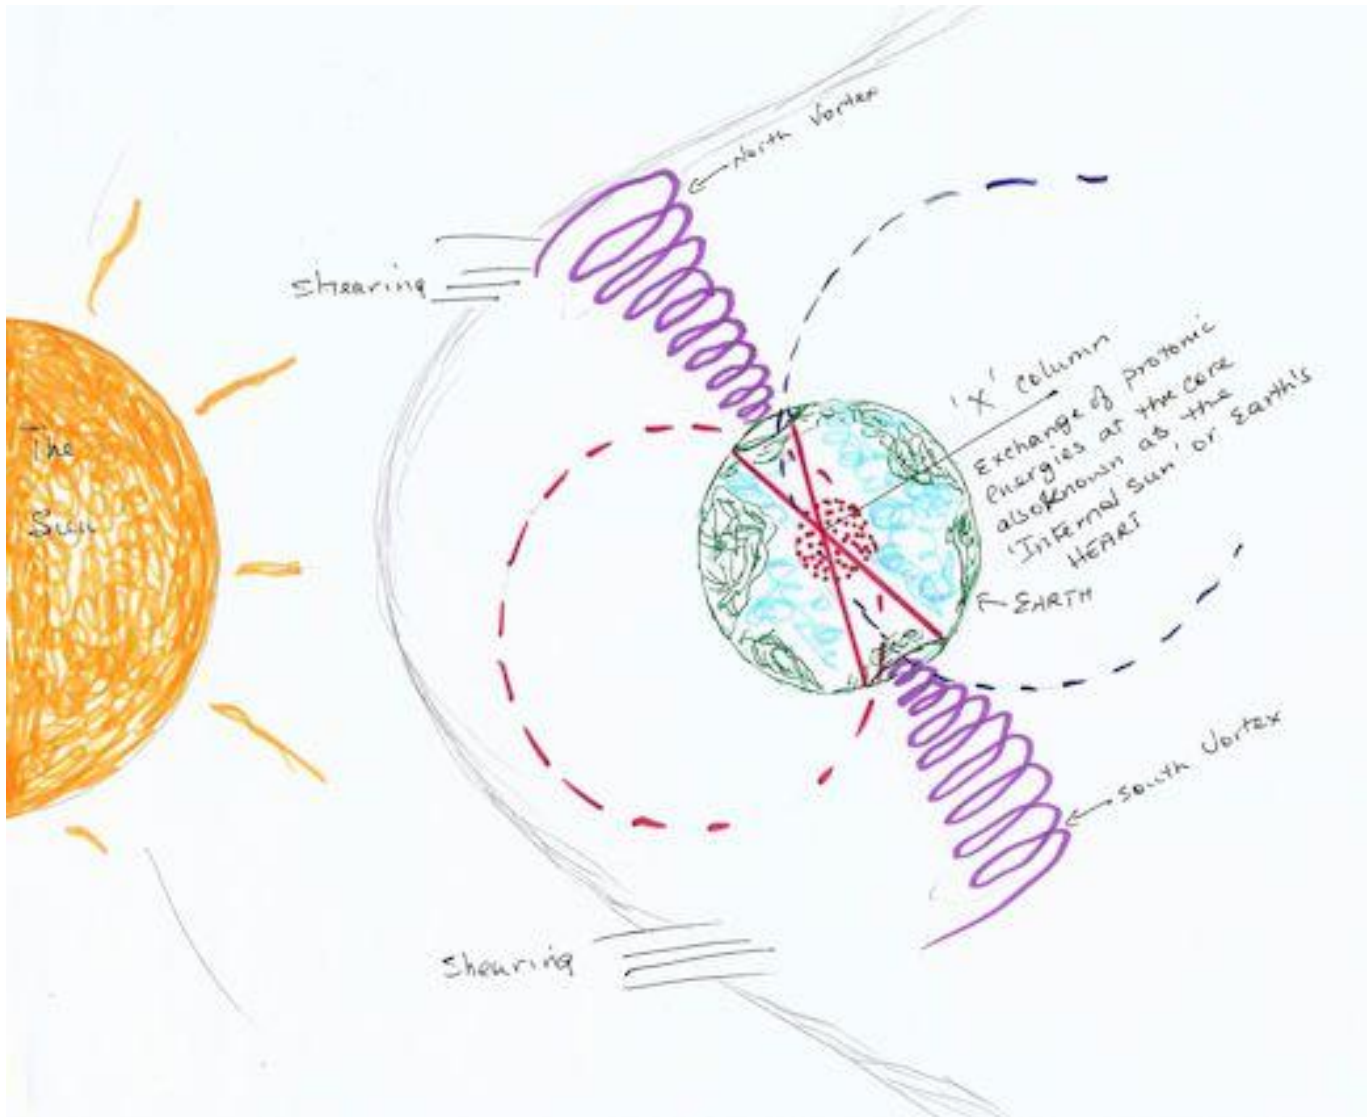 The
Sun
North Vortex
Shearing
'X' column
Exchange of protonic
energies at the core
also known as the
'Internal Sun' or Earth's
HEART
EARTH
South Vortex
Shearing